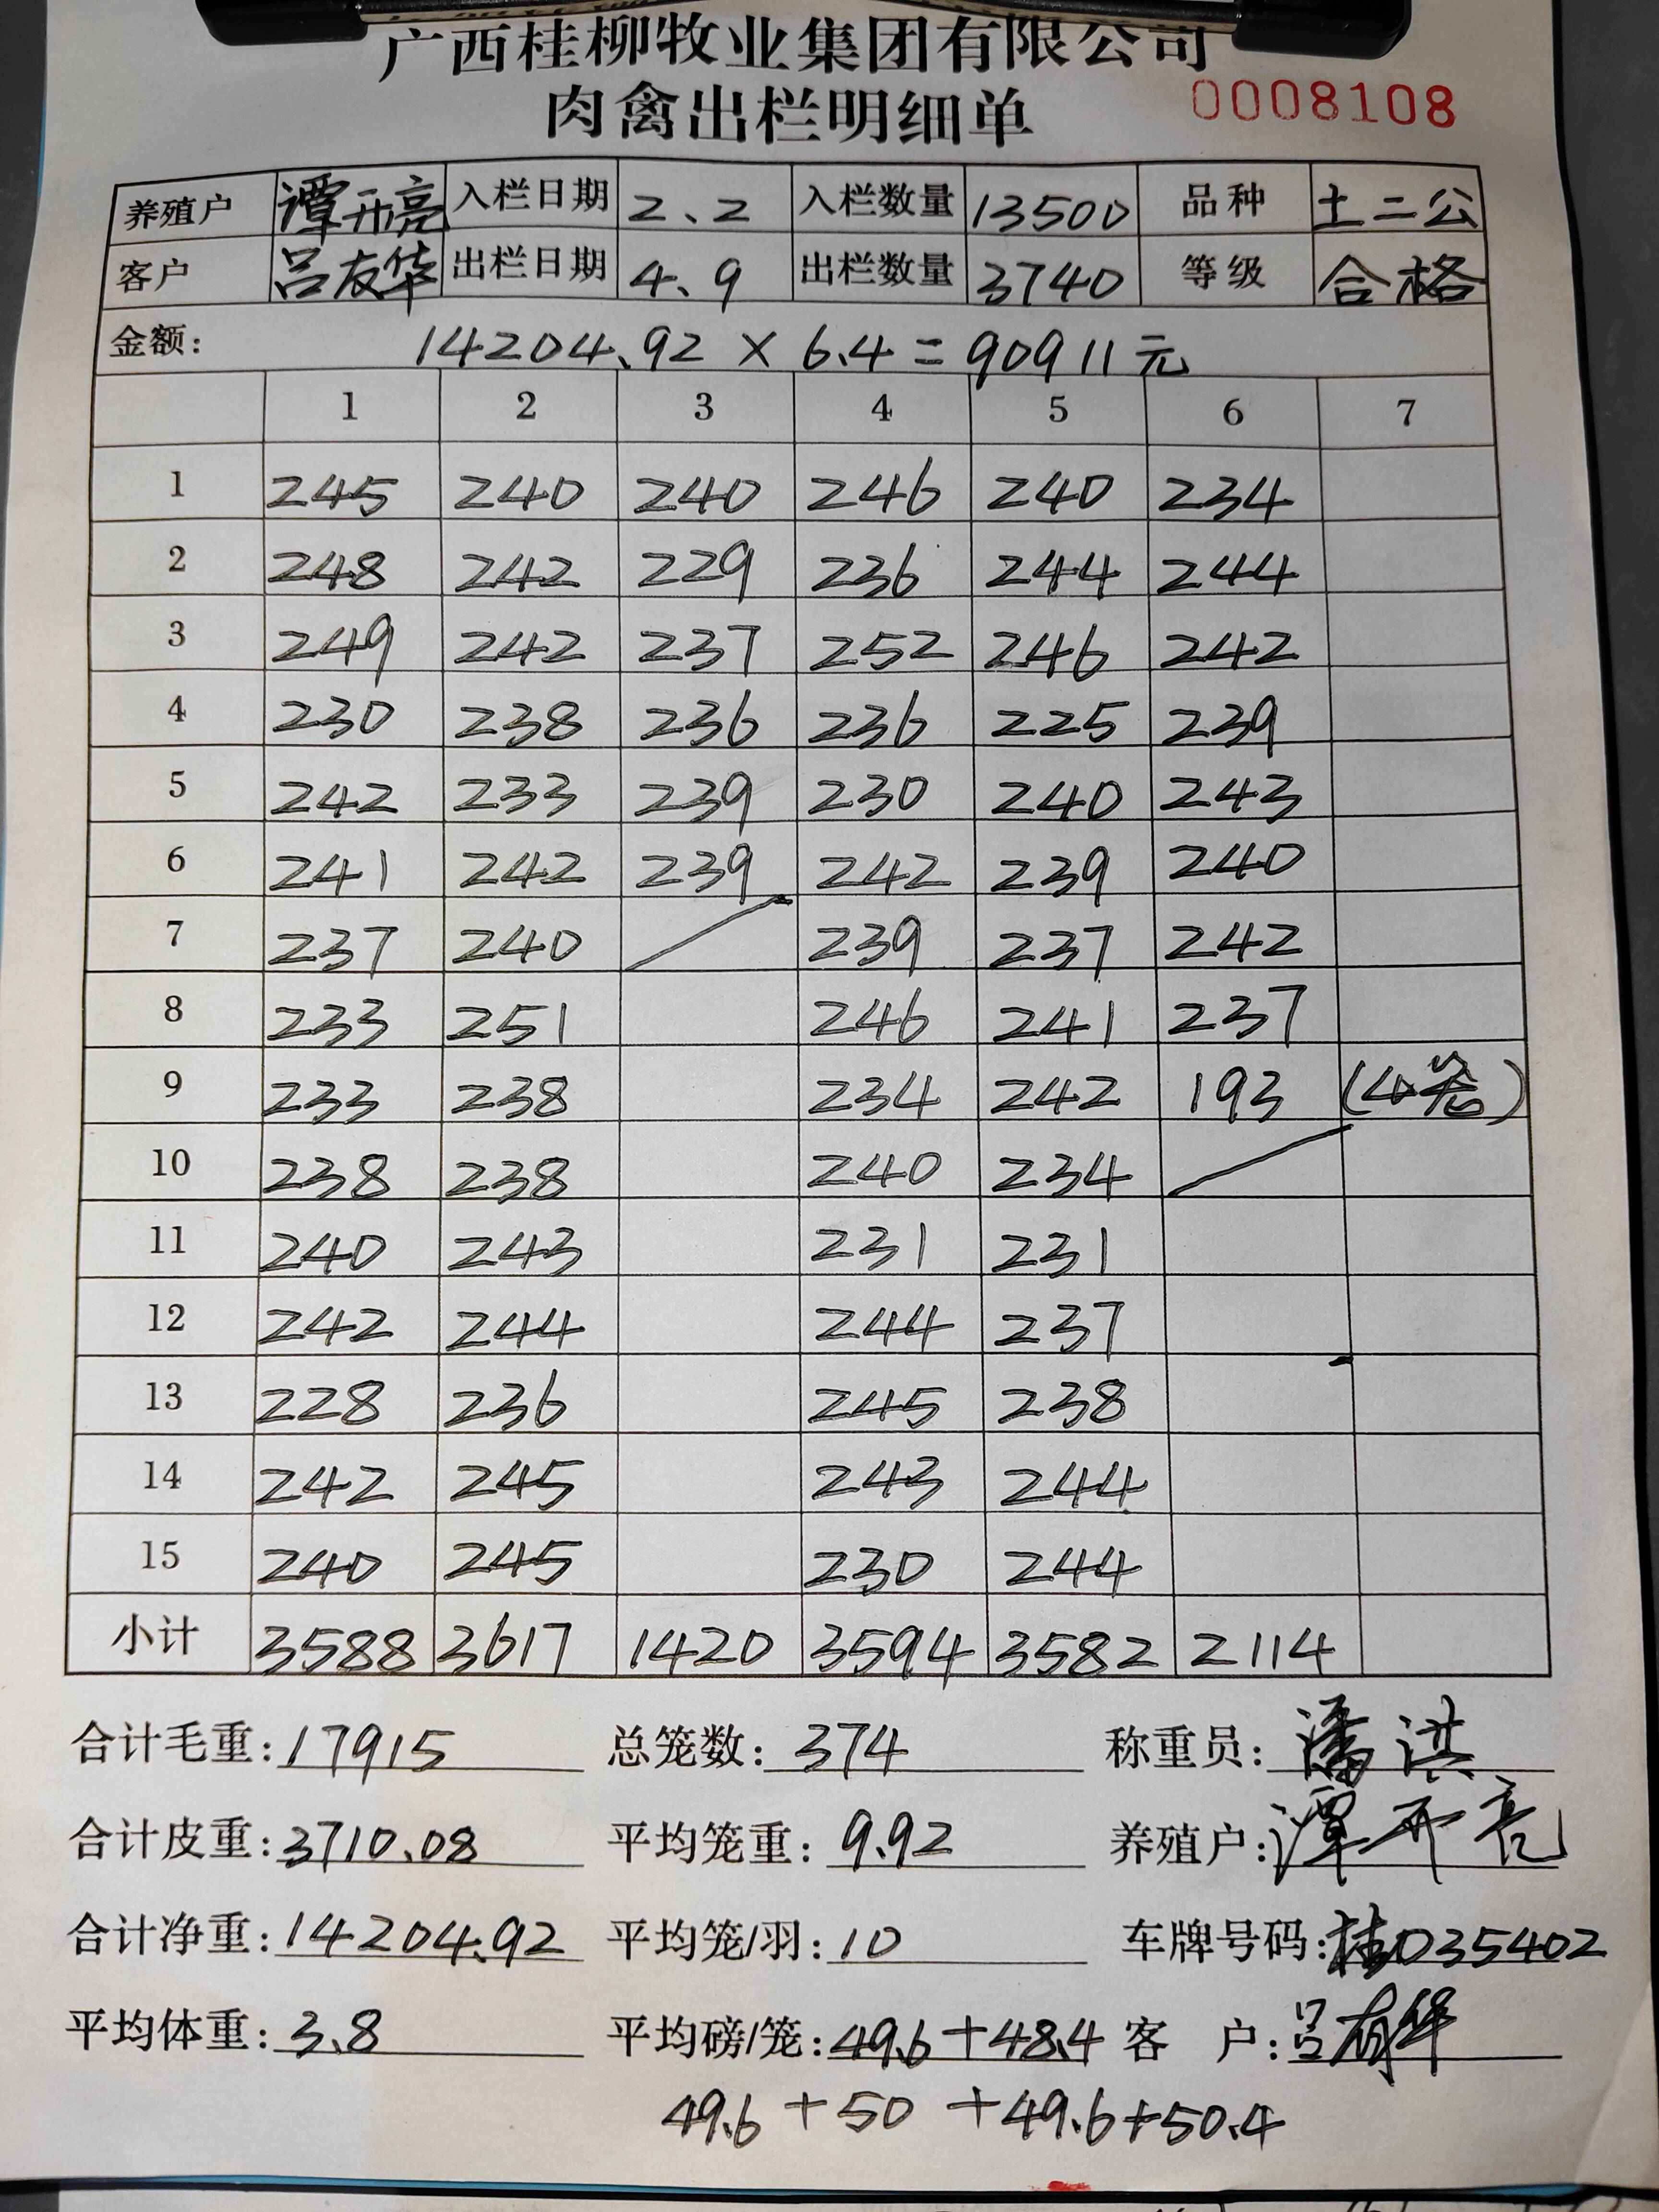 广西桂柳牧业集团有限公司
肉禽出栏明细单 0008108
养殖户 谭开亮 入栏日期 2、2 入栏数量 13500 品种 土二公
客户 吕友华 出栏日期 4、9 出栏数量 3740 等级 合格
金额: 14204.92 × 6.4 = 90911元
1 2 3 4 5 6 7
1 245 240 240 246 240 234
2 248 242 229 236 244 244
3 249 242 237 252 246 242
4 230 238 236 236 225 239
5 242 233 239 230 240 243
6 241 242 239 242 239 240
7 237 240 239 237 242
8 233 251 246 241 237
9 233 238 234 242 193 (4笼)
10 238 238 240 234
11 240 243 231 231
12 242 244 244 237
13 228 236 245 238
14 242 245 243 244
15 240 245 230 244
小计 3588 3617 1420 3594 3582 2114
合计毛重: 17915 总笼数: 374 称重员: 潘洪
合计皮重: 3710.08 平均笼重: 9.92 养殖户: 谭开亮
合计净重: 14204.92 平均笼/羽: 10 车牌号码: 桂D35402
平均体重: 3.8 平均磅/笼: 49.6+48.4 客 户: 吕友华
49.6+50+49.6+50.4